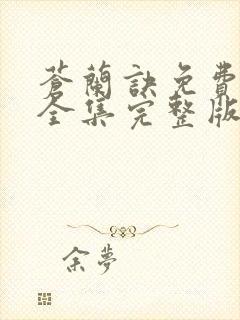 蒼蘭訣免費
全集完整版
余夢